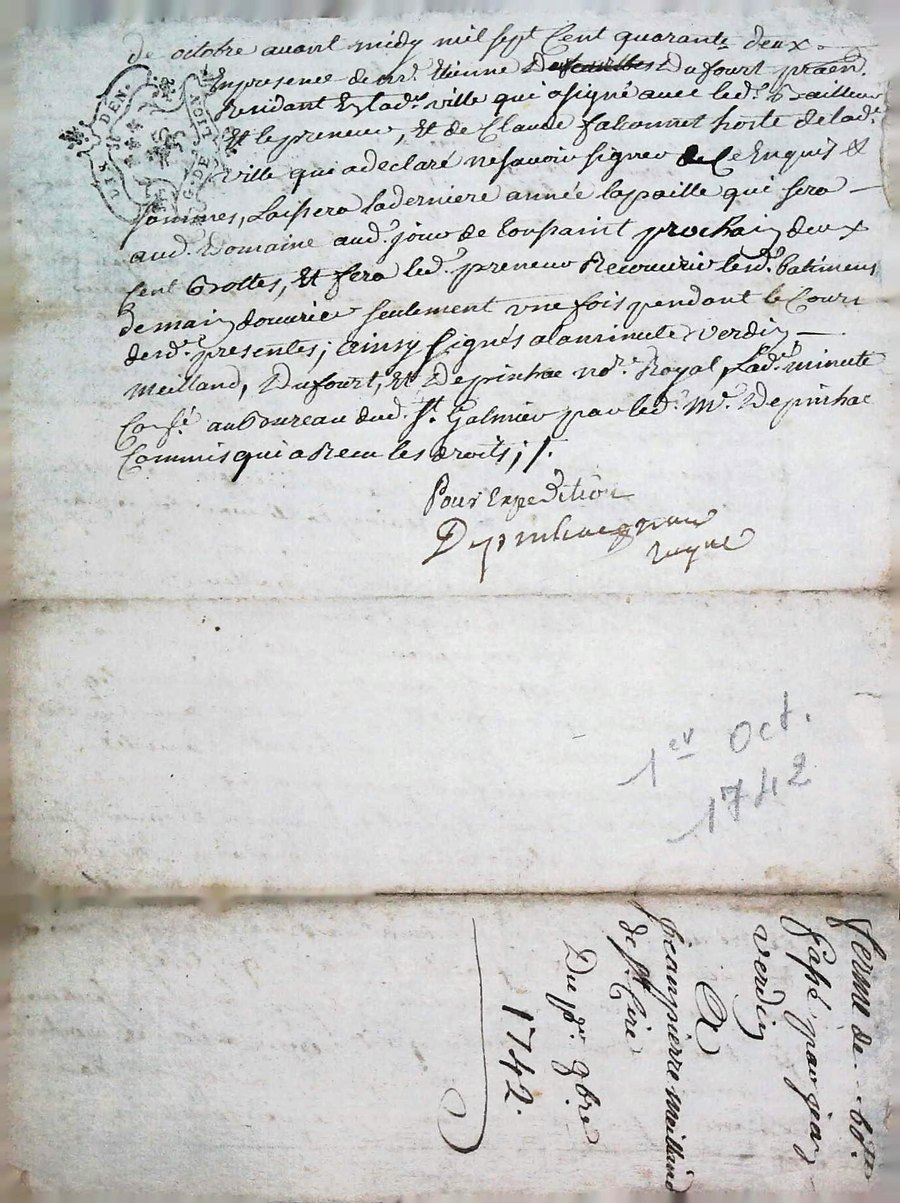 de octobre avant midy mil sept Cent quarante deux.
En presence de mr. Etienne Dufourt praen.
Residant En lad. ville qui a signé avec led. Bailleur
Et le preneur, Et de Claude falconnet hoste de lad.
ville qui a declaré ne savoir signer de ce Enquis &
sommes, Laissera la derniere année la paille qui sera
aud. Domaine aud. jour de toussaint prochain deux
Cent Bottes, Et fera led. preneur Recouvrir lesd. batimens
de main douvrier seulement une fois pendant le Cours
desd. presentes; ainsy signés a la minute verdin
Meilland, Dufourt, Et Depinhac nore. Royal, Lad. minute
au Boureau dud. St. Galmier par led. Me. Depinhac
Commis qui a Receu les droits; /.
Pour Expedition
UIS DEN.
G. DE LION
1er Oct.
1742
ferme de
passé par jean
verdin
A
Jean pierre Meilland
de St. Cire
Du pr. 8bre
1742.